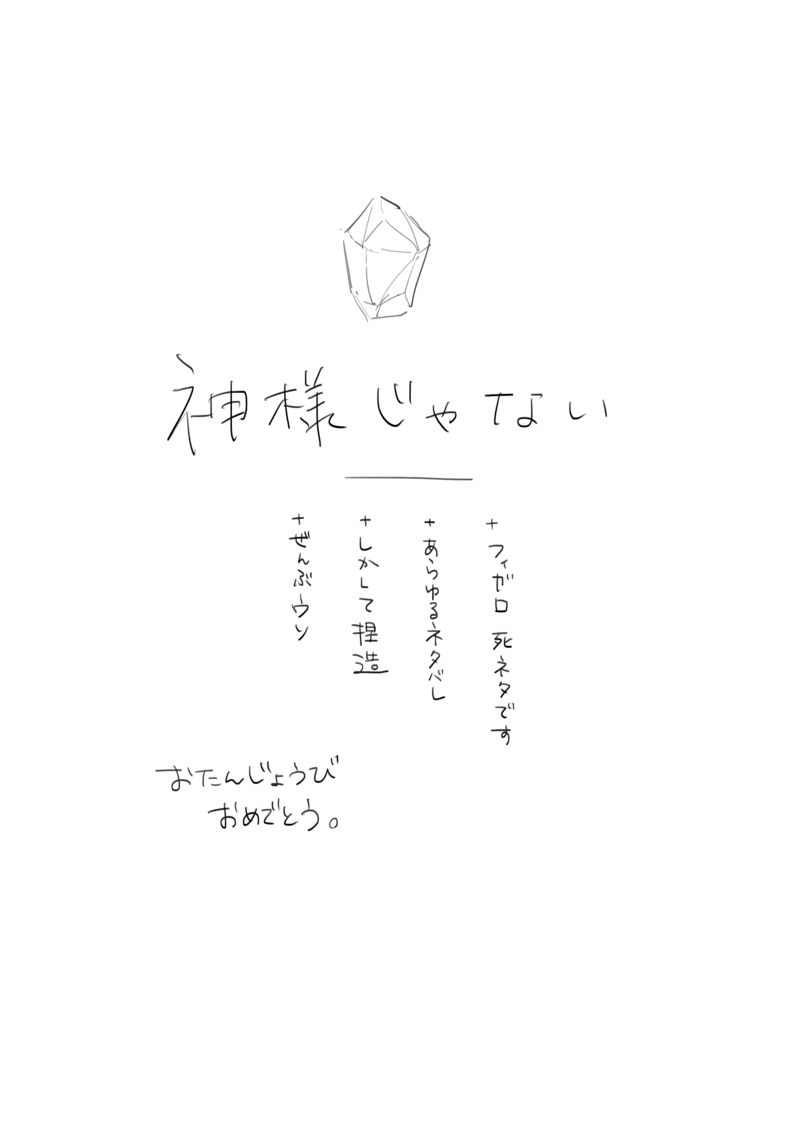 神様じゃない
+フィガロ 死ネタです
+あらゆるネタバレ
+しかして捏造
+ぜんぶウソ
おたんじょうび
おめでとう。